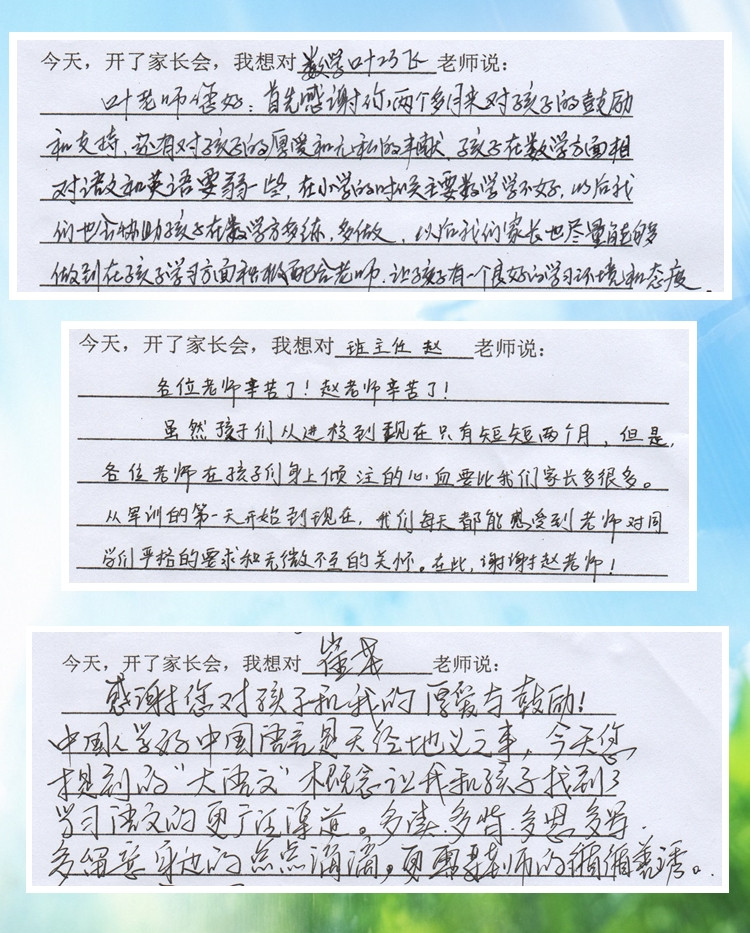 今天，开了家长会，我想对 数学叶巧飞 老师说：
叶老师您好：首先感谢你，两个多月来对孩子的鼓励
和支持，还有对孩子的厚爱和无私的奉献，孩子在数学方面相
对语文和英语要弱一些，在小学的时候主要数学学不好，以后我
们也会协助孩子在数学方多练，多做，以后我们家长也尽量能够
做到在孩子学习方面积极配合老师，让孩子有一个良好的学习环境和态度。
今天，开了家长会，我想对 班主任 赵 老师说：
各位老师辛苦了！赵老师辛苦了！
虽然孩子们从进校到现在只有短短两个月，但是，
各位老师在孩子们身上倾注的心血要比我们家长多很多。
从军训的第一天开始到现在，我们每天都能感受到老师对同
学们严格的要求和无微不至的关怀。在此，谢谢赵老师！
今天，开了家长会，我想对 崔 老师说：
感谢您对孩子和我的厚爱与鼓励！
中国人学好中国语言是天经地义之事，今天您
提到的“大语文”概念让我和孩子找到了
学习语文的更广泛渠道。多读、多背、多思、多写、
多留意身边的点点滴滴。更需要老师的循循善诱。